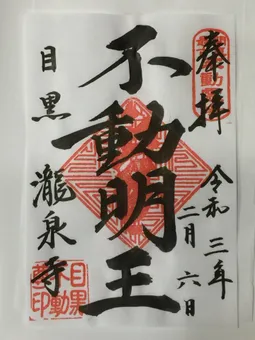 奉拝
令和三年二月六日
不動明王
目黒
瀧泉寺
目黒
不動